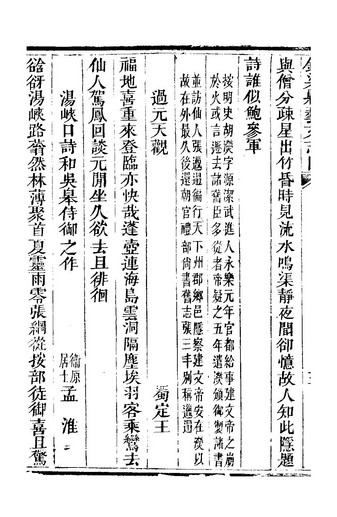 與僧分疎星出竹昏時見流水鳴渠靜夜聞卻憶故人知此隱題
詩誰似鮑參軍
按明史胡濙字源潔武進人永樂元年官都給事建文帝之崩
於火或言遜去諸舊臣多從者帝疑之五年遣濙頒御製諸書
並訪仙人張邋遢徧行天下州郡鄉邑隱察建文帝安在濙以
故在外最久後還朝官禮部尚書舊志張三丰別稱邋遢
過元天觀
蜀定王
福地喜重來登臨亦快哉蓬壺連海島雲洞隔塵埃羽客乘鸞去
仙人駕鳳回談元開坐久欲去且徘徊
湯峽口詩和吳皋侍御之作
衛原居士
孟淮
谽谺湯峽路蓊然林薄聚首夏靈雨零張綱從按部徒御喜且驚